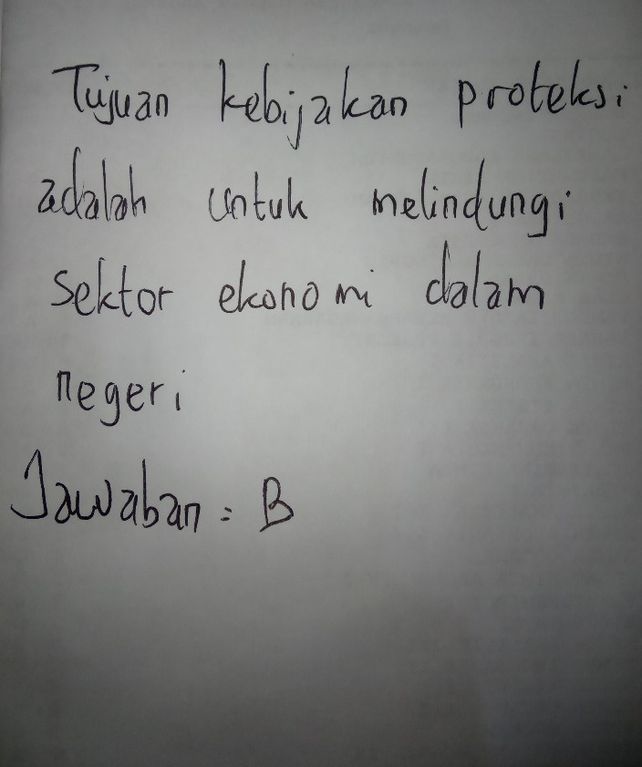 Tujuan kebijakan proteksi
adalah untuk melindungi
Sektor ekonomi dalam
negeri
Jawaban = B